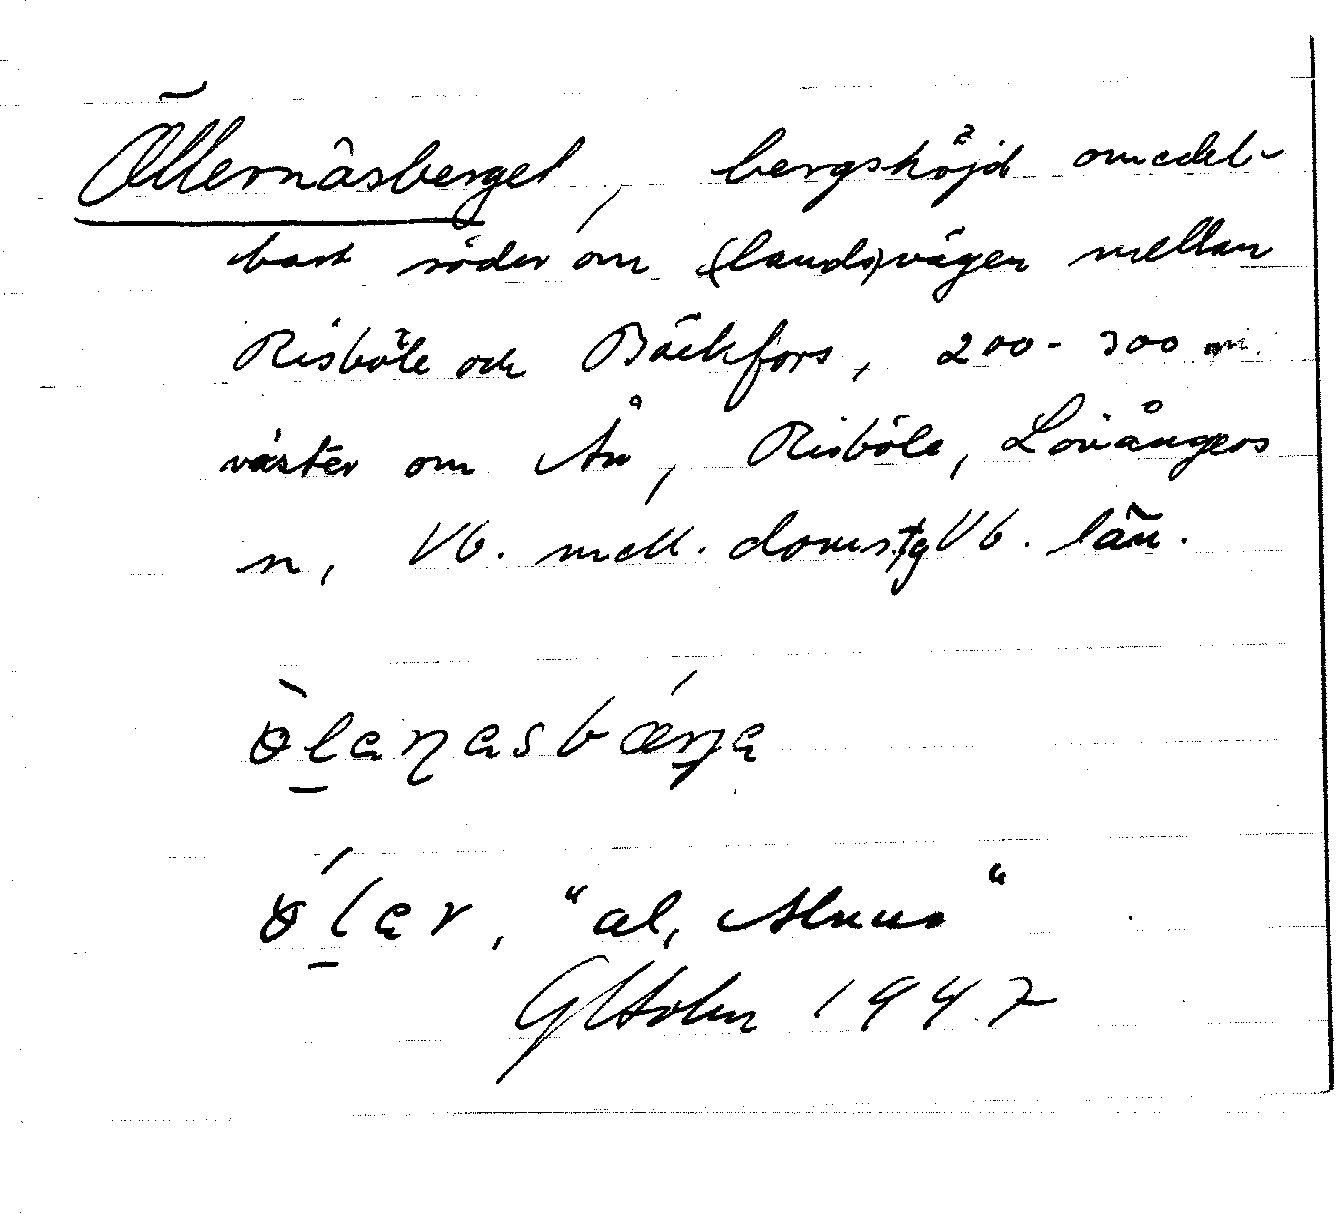 Öllernäsberget, bergshöjd omedel-
bart söder om (lands)vägen mellan
Risböle och Bäckfors, 200-300 m.
väster om Ån, Risböle, Lövångers
sn, Vb. mell. doms.tg Vb. län.
"al, Alnus"
1947